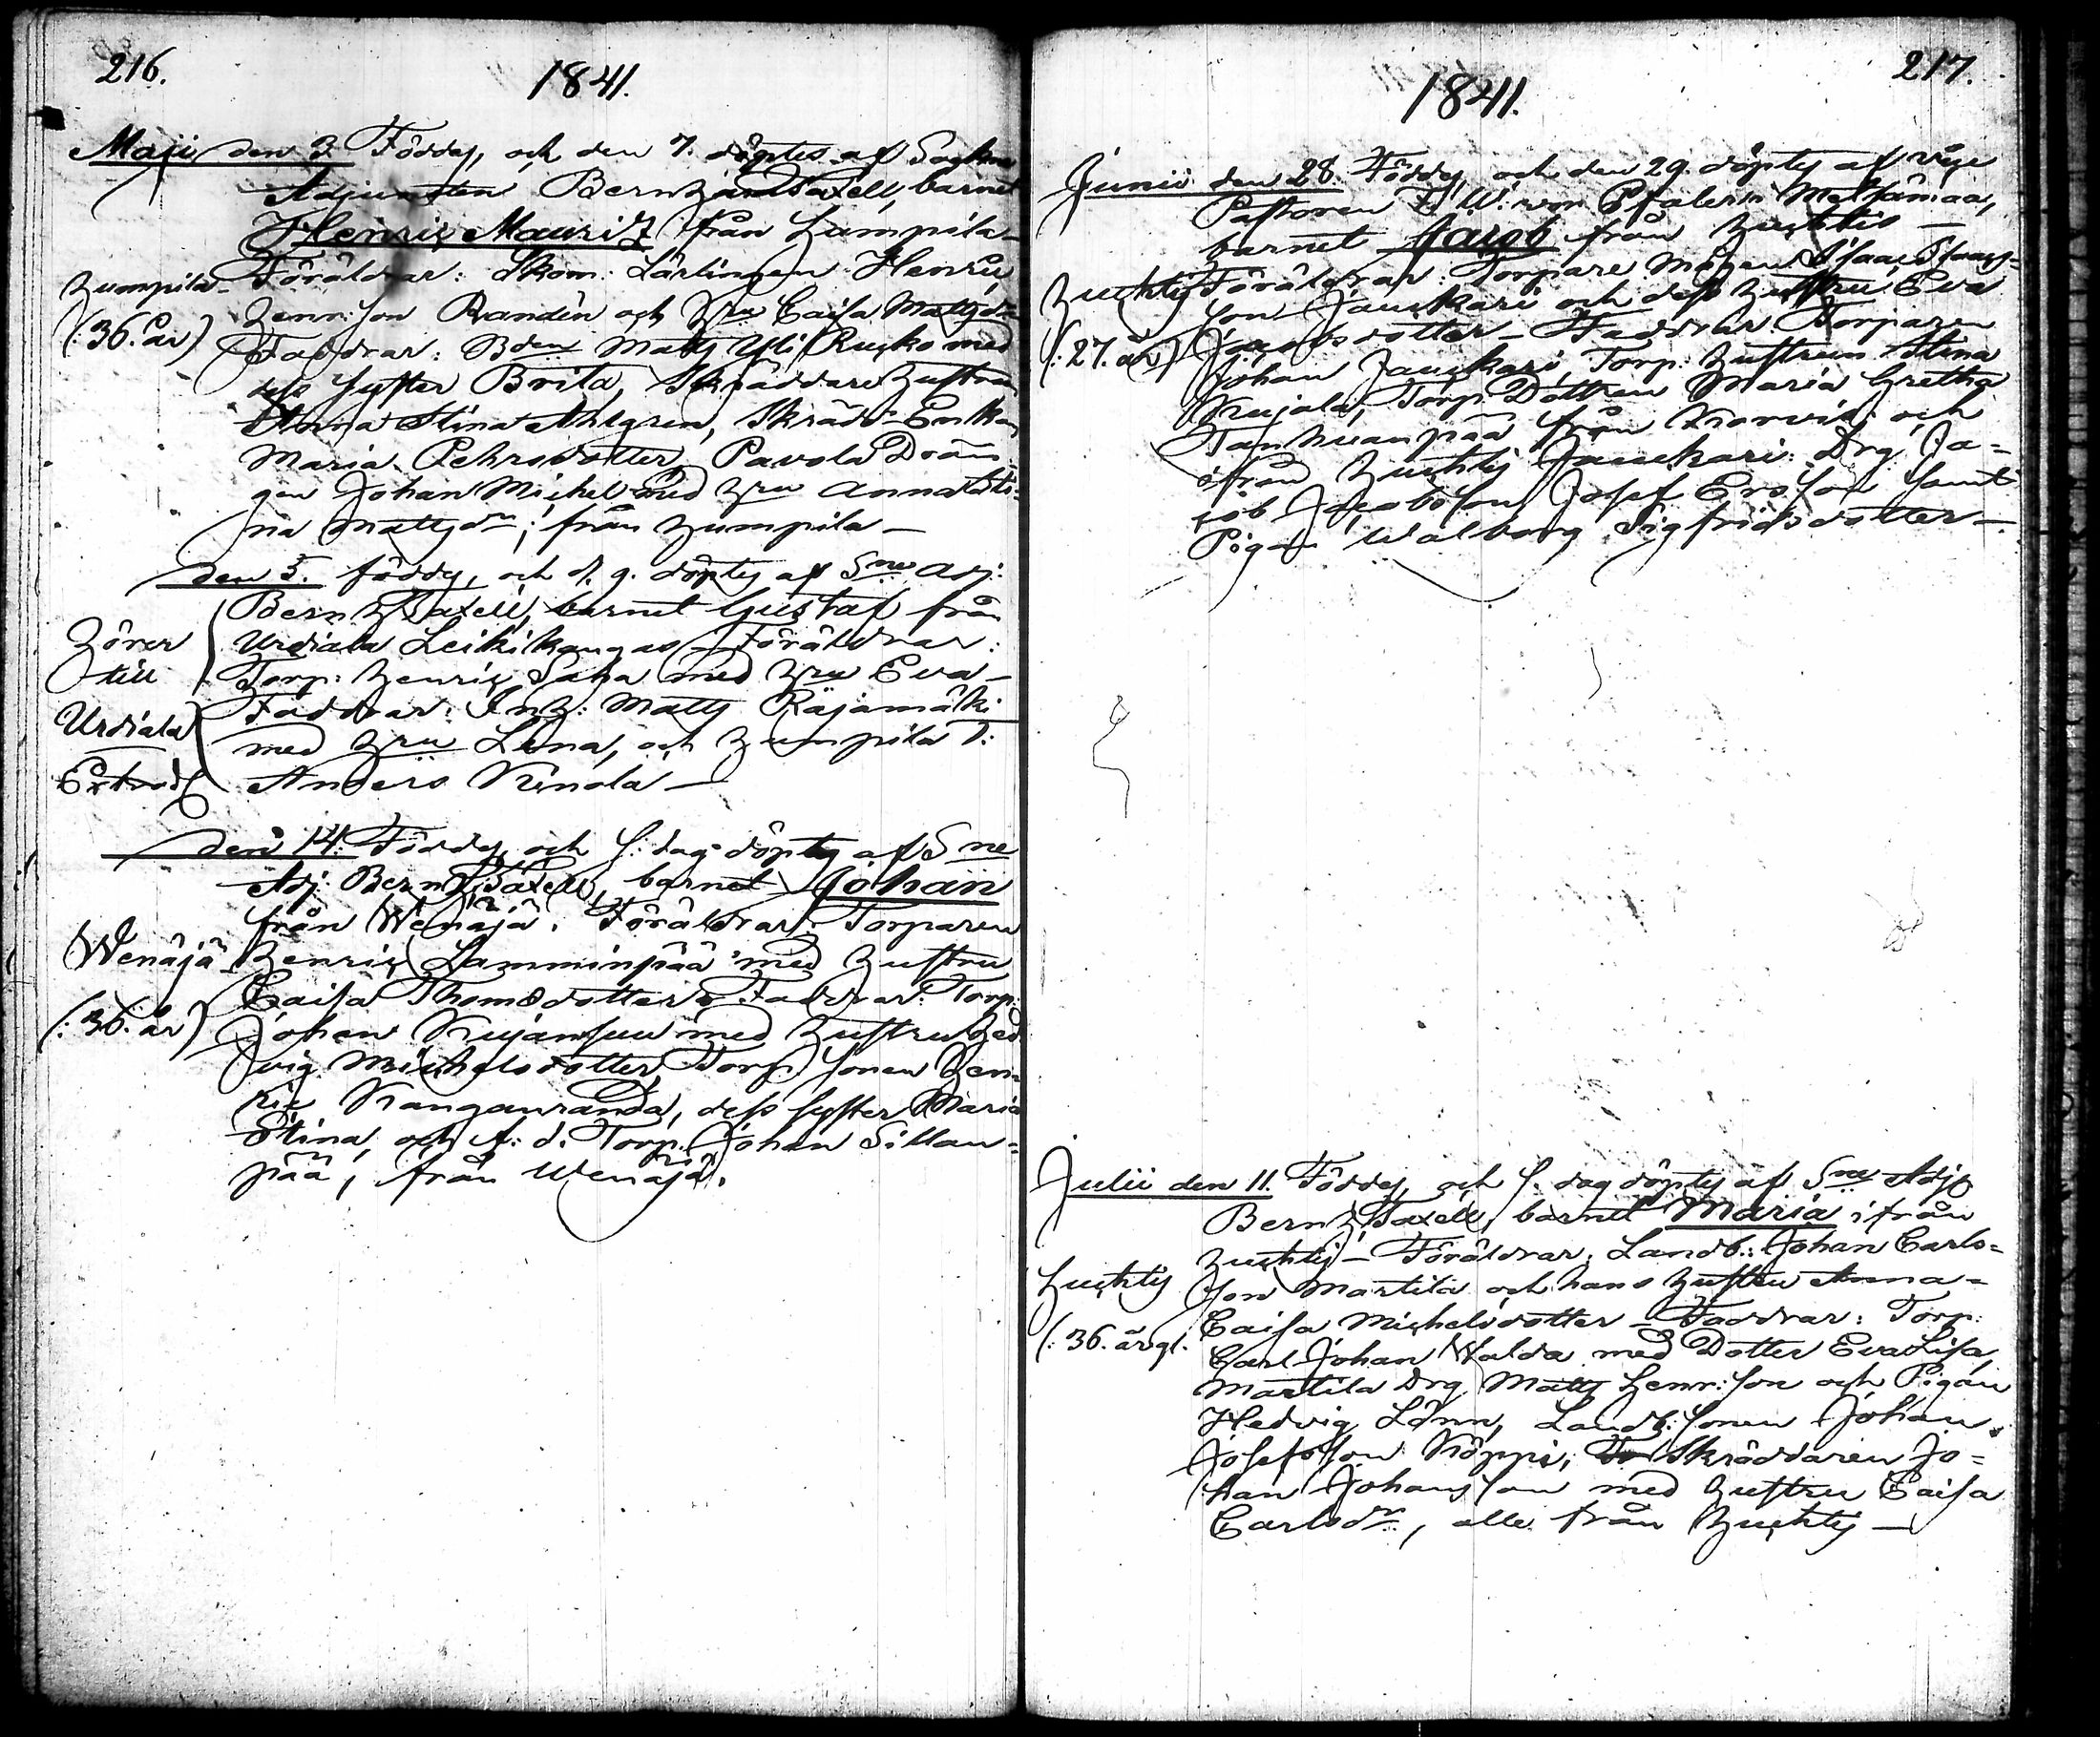 216.
1841.
Maji den 3. Föddes, och den 7. döptes af Sockne
Adjuncten Bernh. Taxell, barnet
Henric Mauritz från Humpila —
Humpila — Föräldrar: Skom: Lärlingen Henric
(: 36. år) Henr: Son Randén och Hru Caisa Mattsdr
Faddrar: Bden Matts Yli Rucko med
dess Syster Brita, Skräddare Hustrun
Anna Stina Ahlgren, Skrädd: Enkan
Maria Pehrsdotter, Pavola Drän-
gen Johan Michel med Hru Anna Sti-
na Mattsdr; från Humpila —
den 5. föddes, och d. 9. döptes af Sne Adj:
Bernh. Taxell, barnet Gustaf från
Hörer Urdiala Leikikangas — Föräldrar:
till Torp: Henric Saha med Hru Eva —
Urdiala Faddrar: Inh: Matts Rajamäki
med Hru Lena, och Humpila T:
Anders Kinola —
den 14. Föddes och s: dag döptes af Sne
Adj: Bernh. Taxell, barnet Johan
från Wenäjä. Föräldrar: Torparen
Wenäjä Henric Lamminpää med Hustru
Caisa Thomsdotter. Faddrar: Torp:
(: 36. år) Johan Kujansuu med Hustru Hed-
vig Michelsdotter, Torp. Sonen Hen-
ric Kanganranda, dess syster Maria
Stina, och f: d. Torp. Johan Sillan-
pää, från Wenäjä.
217.
1841.
Junii den 28. Föddes, och den 29. döptes af vice
Pastoren F. W. von Pfaler i Metsämaa,
barnet Jacob från Huchtis —
Huchtis Föräldrar: Torpare Mågen Isaac Isaacs-
son Jauckari och dess Hustru Eva
(: 27. år) Jacobsdotter — Faddrar: Torparen
Johan Jauckari, Torp: Hustrun Stina
Kujala, Torp. Dottren Maria Gretha
Tanhuanpää från Korvis; och
ifrån Huchtis Jauckari Drg. Ja-
cob Jacobsson, Josef Ersson samt
Pigan Walborg Sigfridsdotter —
Julii den 11. Föddes, och s. dag döptes af Sne Adj:
Bernh. Taxell, barnet Maria ifrån
Huchtis — Föräldrar: Landb: Johan Carls-
Huchtis son Martila och hans Hustru Anna-
Caisa Michelsdotter — Faddrar: Torp:
(: 36. årgl. Carl Johan Walda med Dotter Eva Lisa,
Martila Drg. Matts Henr: Son och Pigan
Hedvig Lönn, Landb: Sonen Johan
Josefsson Köppi, Skräddaren Jo-
han Johansson med Hustru Caisa
Carlsdr, alla från Huchtis —